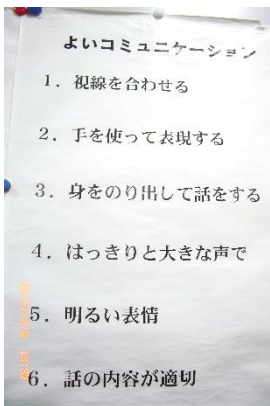 よいコミュニケーション
1．視線を合わせる
2．手を使って表現する
3．身をのり出して話をする
4．はっきりと大きな声で
5．明るい表情
6．話の内容が適切